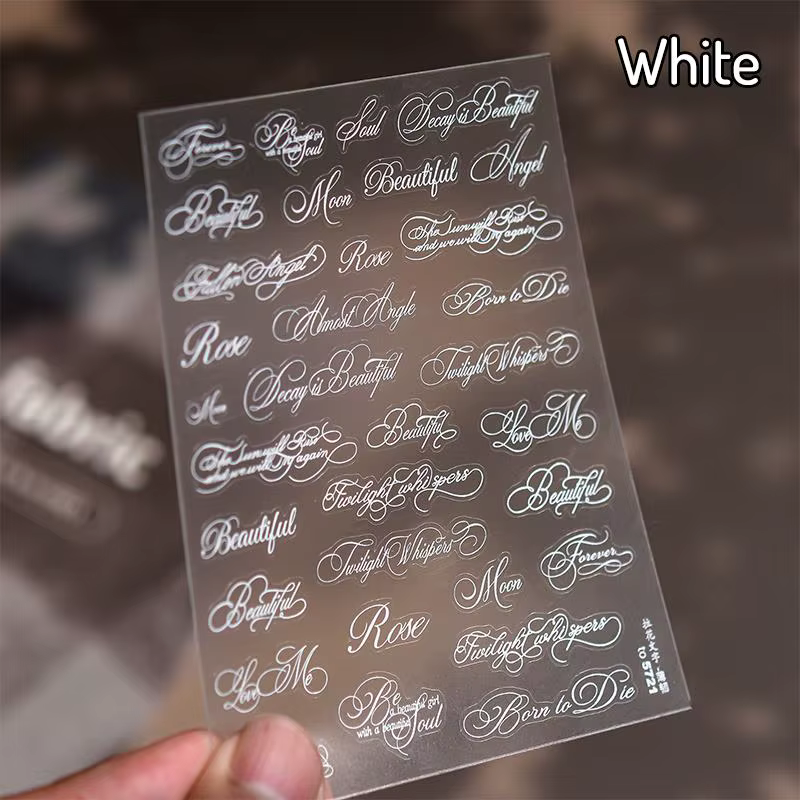 White
Forever
Be
a beautiful girl
with a beautiful
Soul
Soul
Decay is Beautiful
Beautiful
Moon
Beautiful
Angel
Fallen Angel
Rose
The sun will Rise
and we will try again
Rose
Almost Angle
Born to Die
Moon
Decay is Beautiful
Twilight Whispers
The sun will Rise
and we will try again
Beautiful
Love Me
Twilight whispers
Beautiful
Beautiful
Twilight Whispers
Forever
Beautiful
Moon
Rose
Twilight whispers
Love Me
Be
a beautiful girl
with a beautiful
Soul
Born to Die
to 5721